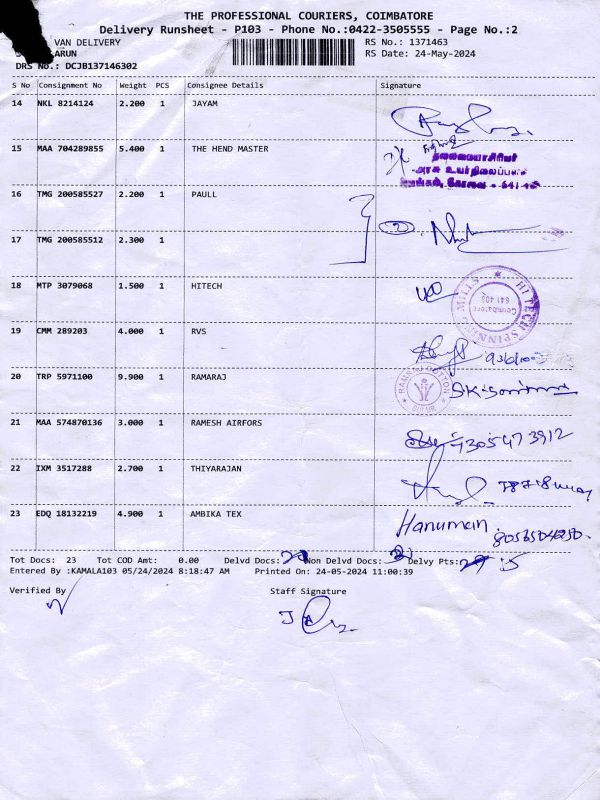 THE PROFESSIONAL COURIERS, COIMBATORE
Delivery Runsheet - P103 - Phone No.:0422-3505555 - Page No.:2
VAN DELIVERY RS No.: 1371463
ARUN RS Date: 24-May-2024
DRS No.: DCJB137146302
S No Consignment No Weight PCS Consignee Details Signature
14 NKL 8214124 2.200 1 JAYAM
15 MAA 704289855 5.400 1 THE HEND MASTER
தலைமையாசிரியர்
16 TMG 200585527 2.200 1 PAULL
17 TMG 200585512 2.300 1
2
18 MTP 3079068 1.500 1 HITECH
HI TECH SPINNING MILLS
Coimbatore
641 408
19 CMM 289203 4.000 1 RVS
20 TRP 5971100 9.900 1 RAMARAJ
21 MAA 574870136 3.000 1 RAMESH AIRFORS
7305473912
22 IXM 3517288 2.700 1 THIYARAJAN
23 EDQ 18132219 4.900 1 AMBIKA TEX Hanuman
Tot Docs: 23 Tot COD Amt: 0.00 Delvd Docs: Non Delvd Docs: Delvy Pts:
Entered By :KAMALA103 05/24/2024 8:18:47 AM Printed On: 24-05-2024 11:00:39
Verified By Staff Signature